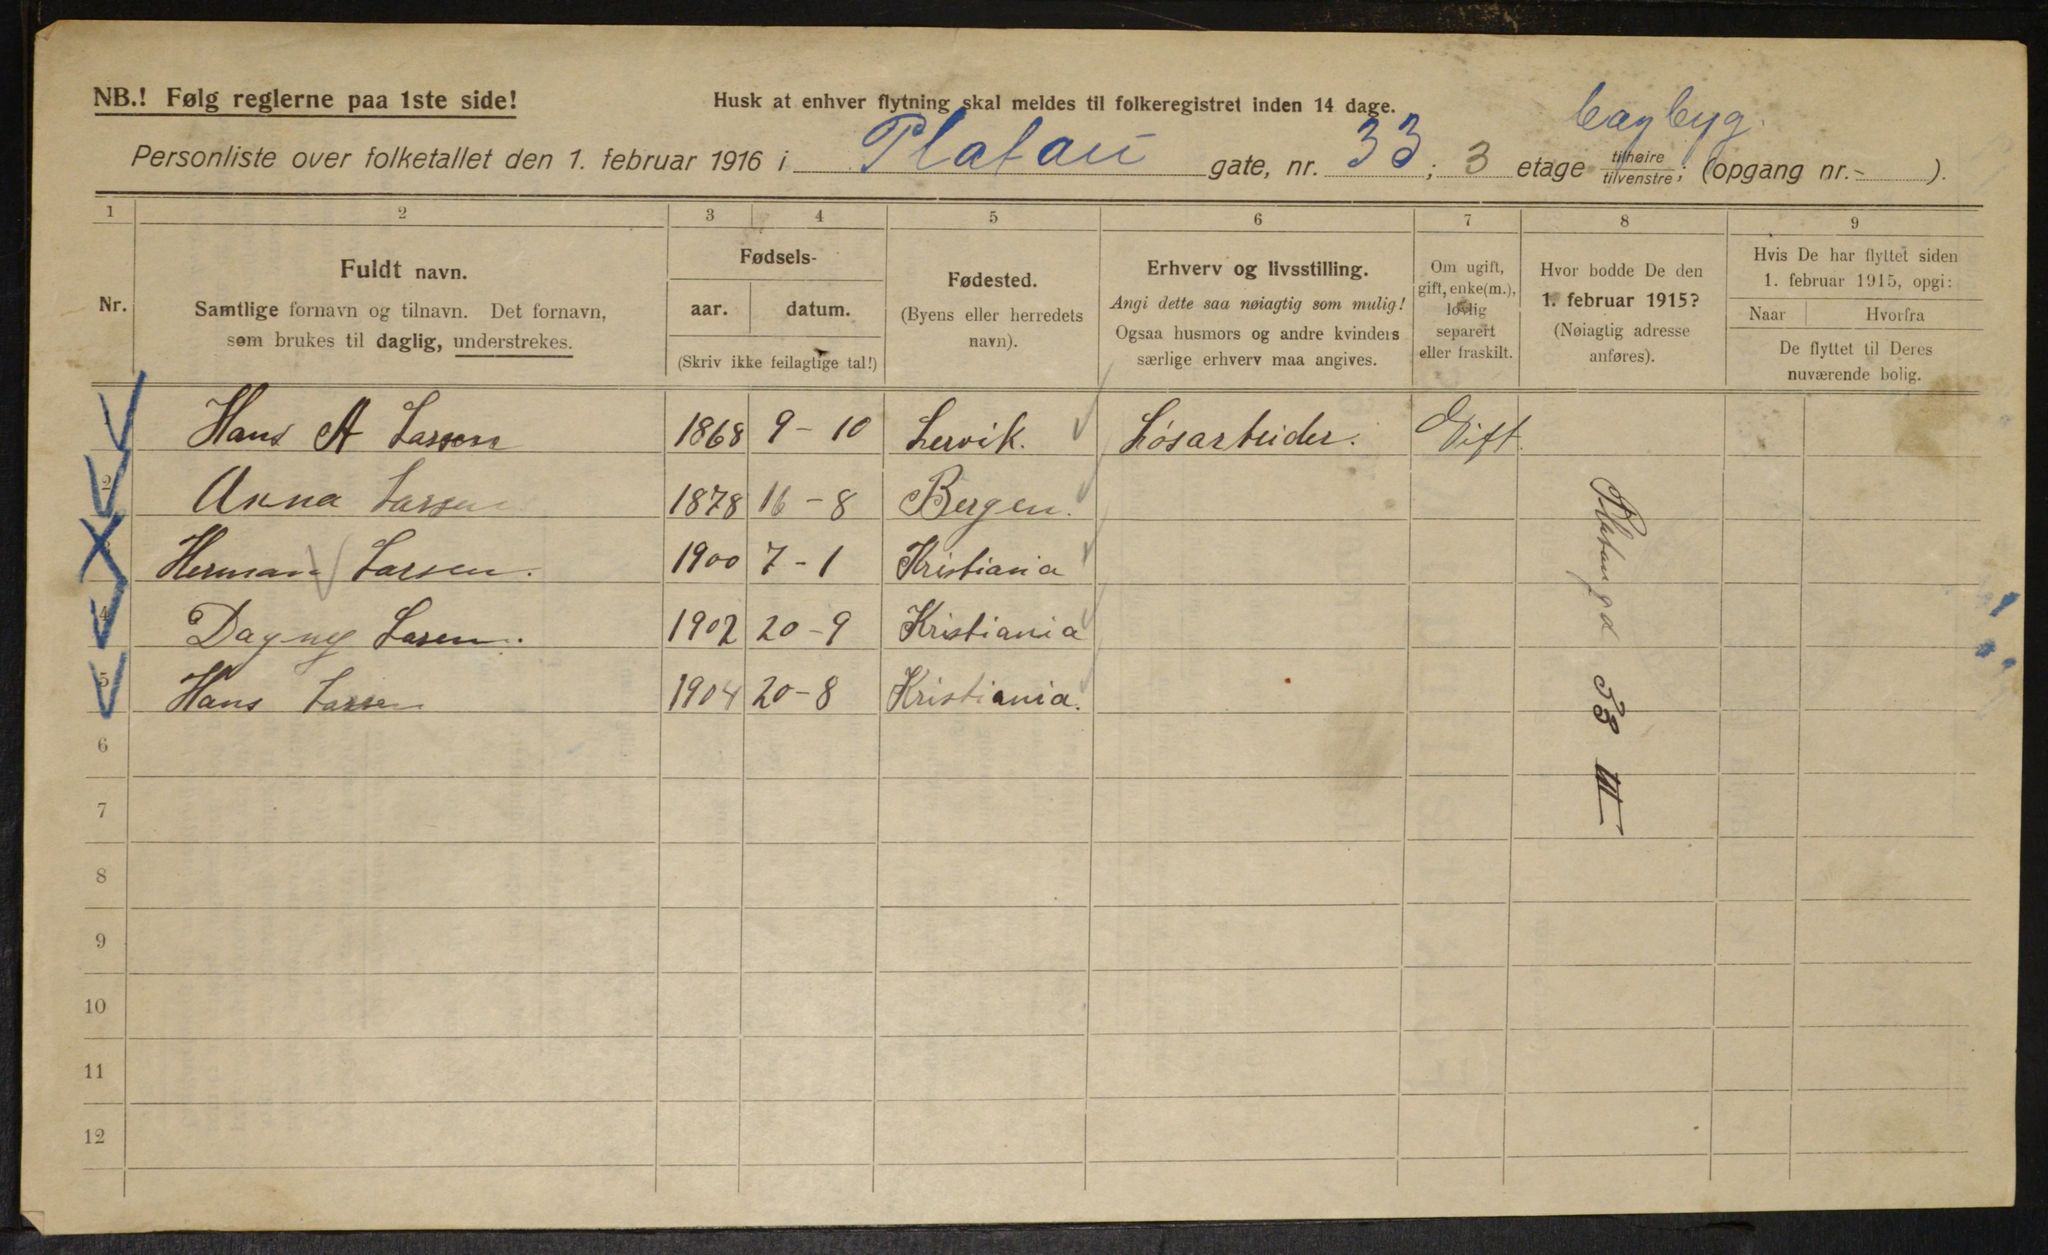 NB.! Følg reglerne paa 1ste side!
Husk at enhver flytning skal meldes til folkeregistret inden 14 dage.
Personliste over folketallet den 1. februar 1916 i Platou gate, nr. 33; 3 etage tilhøire tilvenstre; (opgang nr.- ).
1 2 3 4 5 6 7 8 9
Nr.
Fuldt navn.
Samtlige fornavn og tilnavn. Det fornavn,
som brukes til daglig, understrekes.
Fødsels-
aar. datum.
(Skriv ikke feilagtige tal!)
Fødested.
(Byens eller herredets
navn).
Erhverv og livsstilling.
Angi dette saa nøiagtig som mulig!
Ogsaa husmors og andre kvinders
særlige erhverv maa angives.
Om ugift,
gift, enke(m.),
lovlig
separert
eller fraskilt.
Hvor bodde De den
1. februar 1915?
(Nøiagtig adresse
anføres).
Hvis De har flyttet siden
1. februar 1915, opgi:
Naar Hvorfra
De flyttet til Deres
nuværende bolig.
Hans A Larsen 1868 9-10 Lervik. Løsarbeider. Gift.
2 Anna Larsen 1878 16-8 Bergen.
3 Herman Larsen. 1900 7-1 Kristiania
4 Dagny Larsen. 1902 20-9 Kristiania
5 Hans Larsen 1904 20-8 Kristiania.
Platougd 33 III
6
7
8
9
10
11
12